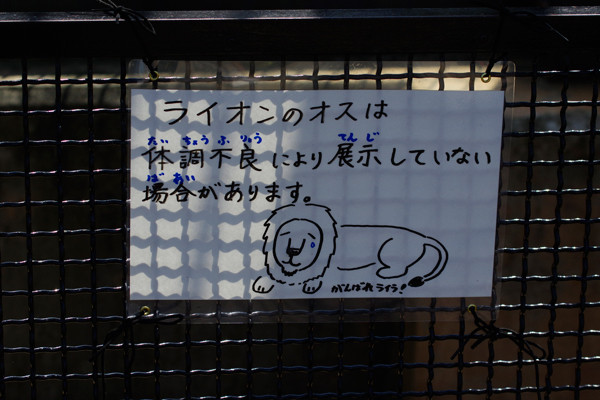 ライオンのオスは
たい ちょう ふ りょう てん じ
体調不良により展示していない
ば あい
場合があります。
がんばれライラ!